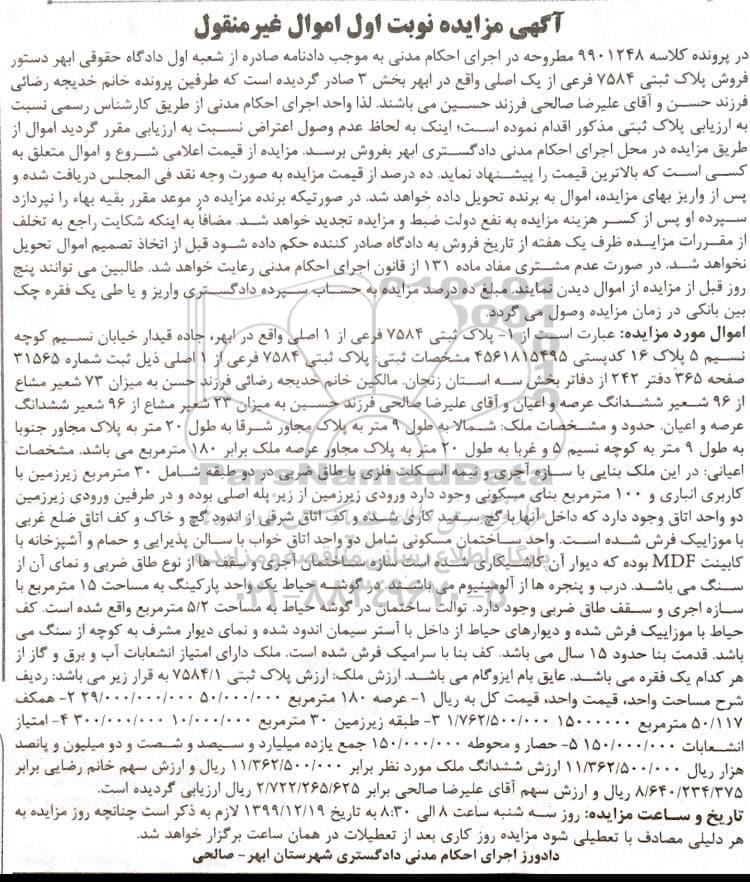 آگهی مزایده نوبت اول اموال غیرمنقول
در پرونده کلاسه ۹۹۰۱۲۴۸ مطروحه در اجرای احکام مدنی به موجب دادنامه صادره از شعبه اول دادگاه حقوقی ابهر دستور
فروش پلاک ثبتی ۷۵۸۴ فرعی از یک اصلی واقع در ابهر بخش ۳ صادر گردیده است که طرفین پرونده خانم خدیجه رضائی
فرزند حسن و آقای علیرضا صالحی فرزند حسین می باشند. لذا واحد اجرای احکام مدنی از طریق کارشناس رسمی نسبت
به ارزیابی پلاک ثبتی مذکور اقدام نموده است؛ اینک به لحاظ عدم وصول اعتراض نسبت به ارزیابی مقرر گردید اموال از
طریق مزایده در محل اجرای احکام مدنی دادگستری ابهر بفروش برسد. مزایده از قیمت اعلامی شروع و اموال متعلق به
کسی است که بالاترین قیمت را پیشنهاد نماید. ده درصد از قیمت مزایده به صورت وجه نقد فی المجلس دریافت شده و
پس از واریز بهای مزایده، اموال به برنده تحویل داده خواهد شد. در صورتیکه برنده مزایده در موعد مقرر بقیه بهاء را نپردازد
سپرده او پس از کسر هزینه مزایده به نفع دولت ضبط و مزایده تجدید خواهد شد. مضافاً به اینکه شکایت راجع به تخلف
از مقررات مزایده ظرف یک هفته از تاریخ فروش به دادگاه صادر کننده حکم داده شود قبل از اتخاذ تصمیم اموال تحویل
نخواهد شد. در صورت عدم مشتری مفاد ماده ۱۳۱ از قانون اجرای احکام مدنی رعایت خواهد شد. طالبین می توانند پنج
روز قبل از مزایده از اموال دیدن نمایند. مبلغ ده درصد مزایده به حساب سپرده دادگستری واریز و یا طی یک فقره چک
بین بانکی در زمان مزایده وصول می گردد.
اموال مورد مزایده: عبارت است از ۱- پلاک ثبتی ۷۵۸۴ فرعی از ۱ اصلی واقع در ابهر، جاده قیدار خیابان نسیم کوچه
نسیم ۵ پلاک ۱۶ کدپستی ۴۵۶۱۸۱۵۴۹۵ مشخصات ثبتی: پلاک ثبتی ۷۵۸۴ فرعی از ۱ اصلی ذیل ثبت شماره ۳۱۵۶۵
صفحه ۳۶۵ دفتر ۲۴۲ از دفاتر بخش سه استان زنجان. مالکین خانم خدیجه رضائی فرزند حسن به میزان ۷۳ شعیر مشاع
از ۹۶ شعیر ششدانگ عرصه و اعیان و آقای علیرضا صالحی فرزند حسین به میزان ۲۳ شعیر مشاع از ۹۶ شعیر ششدانگ
عرصه و اعیان. حدود و مشخصات ملک: شمالا به طول ۹ متر به پلاک مجاور شرقا به طول ۲۰ متر به پلاک مجاور جنوبا
به طول ۹ متر به کوچه نسیم ۵ و غربا به طول ۲۰ متر به پلاک مجاور عرصه ملک برابر ۱۸۰ مترمربع می باشد. مشخصات
اعیانی: در این ملک بنایی با سازه آجری و نیمه اسکلت فلزی با طاق ضربی در دو طبقه شامل ۳۰ مترمربع زیرزمین با
کاربری انباری و ۱۰۰ مترمربع بنای مسکونی وجود دارد ورودی زیرزمین از زیر پله اصلی بوده و در طرفین ورودی زیرزمین
دو واحد اتاق وجود دارد که داخل آنها با گچ سفید کاری شده و کف اتاق شرقی از اندود گچ و خاک و کف اتاق ضلع غربی
با موزاییک فرش شده است. واحد ساختمان مسکونی شامل دو واحد اتاق خواب با سالن پذیرایی و حمام و آشپزخانه با
کابینت MDF بوده که دیوار آن کاشیکاری شده است سازه ساختمان آجری و سقف ها از نوع طاق ضربی و نمای آن از
سنگ می باشد. درب و پنجره ها از آلومینیوم می باشند. در گوشه حیاط یک واحد پارکینگ به مساحت ۱۵ مترمربع با
سازه اجری و سقف طاق ضربی وجود دارد. توالت ساختمان در گوشه حیاط به مساحت ۵/۲ مترمربع واقع شده است. کف
حیاط با موزاییک فرش شده و دیوارهای حیاط از داخل با آستر سیمان اندود شده و نمای دیوار مشرف به کوچه از سنگ می
باشد. قدمت بنا حدود ۱۵ سال می باشد. کف بنا با سرامیک فرش شده است. ملک دارای امتیاز انشعابات آب و برق و گاز از
هر کدام یک فقره می باشد. عایق بام ایزوگام می باشد. ارزش ملک: ارزش پلاک ثبتی ۷۵۸۴/۱ به قرار زیر می باشد: ردیف
شرح مساحت واحد، قیمت واحد، قیمت کل به ریال ۱- عرصه ۱۸۰ مترمربع ۵۰/۰۰۰/۰۰۰ ۲۹/۰۰۰/۰۰۰/۰۰۰ ۲- همکف
۵۰/۱۱۷ مترمربع ۱۵۰۰۰۰۰۰ ۱/۷۶۲/۵۰۰/۰۰۰ ۳- طبقه زیرزمین ۳۰ مترمربع ۱۰/۰۰۰/۰۰۰ ۳۰۰/۰۰۰/۰۰۰ ۴- امتیاز
انشعابات ۱۵۰/۰۰۰/۰۰۰ ۵- حصار و محوطه ۱۵۰/۰۰۰/۰۰۰ جمع یازده میلیارد و سیصد و شصت و دو میلیون و پانصد
هزار ریال ۱۱/۳۶۲/۵۰۰/۰۰۰ ارزش ششدانگ ملک مورد نظر برابر ۱۱/۳۶۲/۵۰۰/۰۰۰ ریال و ارزش سهم خانم رضایی برابر
۸/۶۴۰/۲۳۴/۳۷۵ ریال و ارزش سهم آقای علیرضا صالحی برابر ۲/۷۲۲/۲۶۵/۶۲۵ ریال ارزیابی گردیده است.
تاریخ و ساعت مزایده: روز سه شنبه ساعت ۸ الی ۸:۳۰ به تاریخ ۱۳۹۹/۱۲/۱۹ لازم به ذکر است چنانچه روز مزایده به
هر دلیلی مصادف با تعطیلی شود مزایده روز کاری بعد از تعطیلات در همان ساعت برگزار خواهد شد.
دادورز اجرای احکام مدنی دادگستری شهرستان ابهر- صالحی
ParsNamadData
پایگاه اطلاع رسانی مناقصه و مزایده
۰۲۱-۸۸۳۴۹۶۷۰-۵